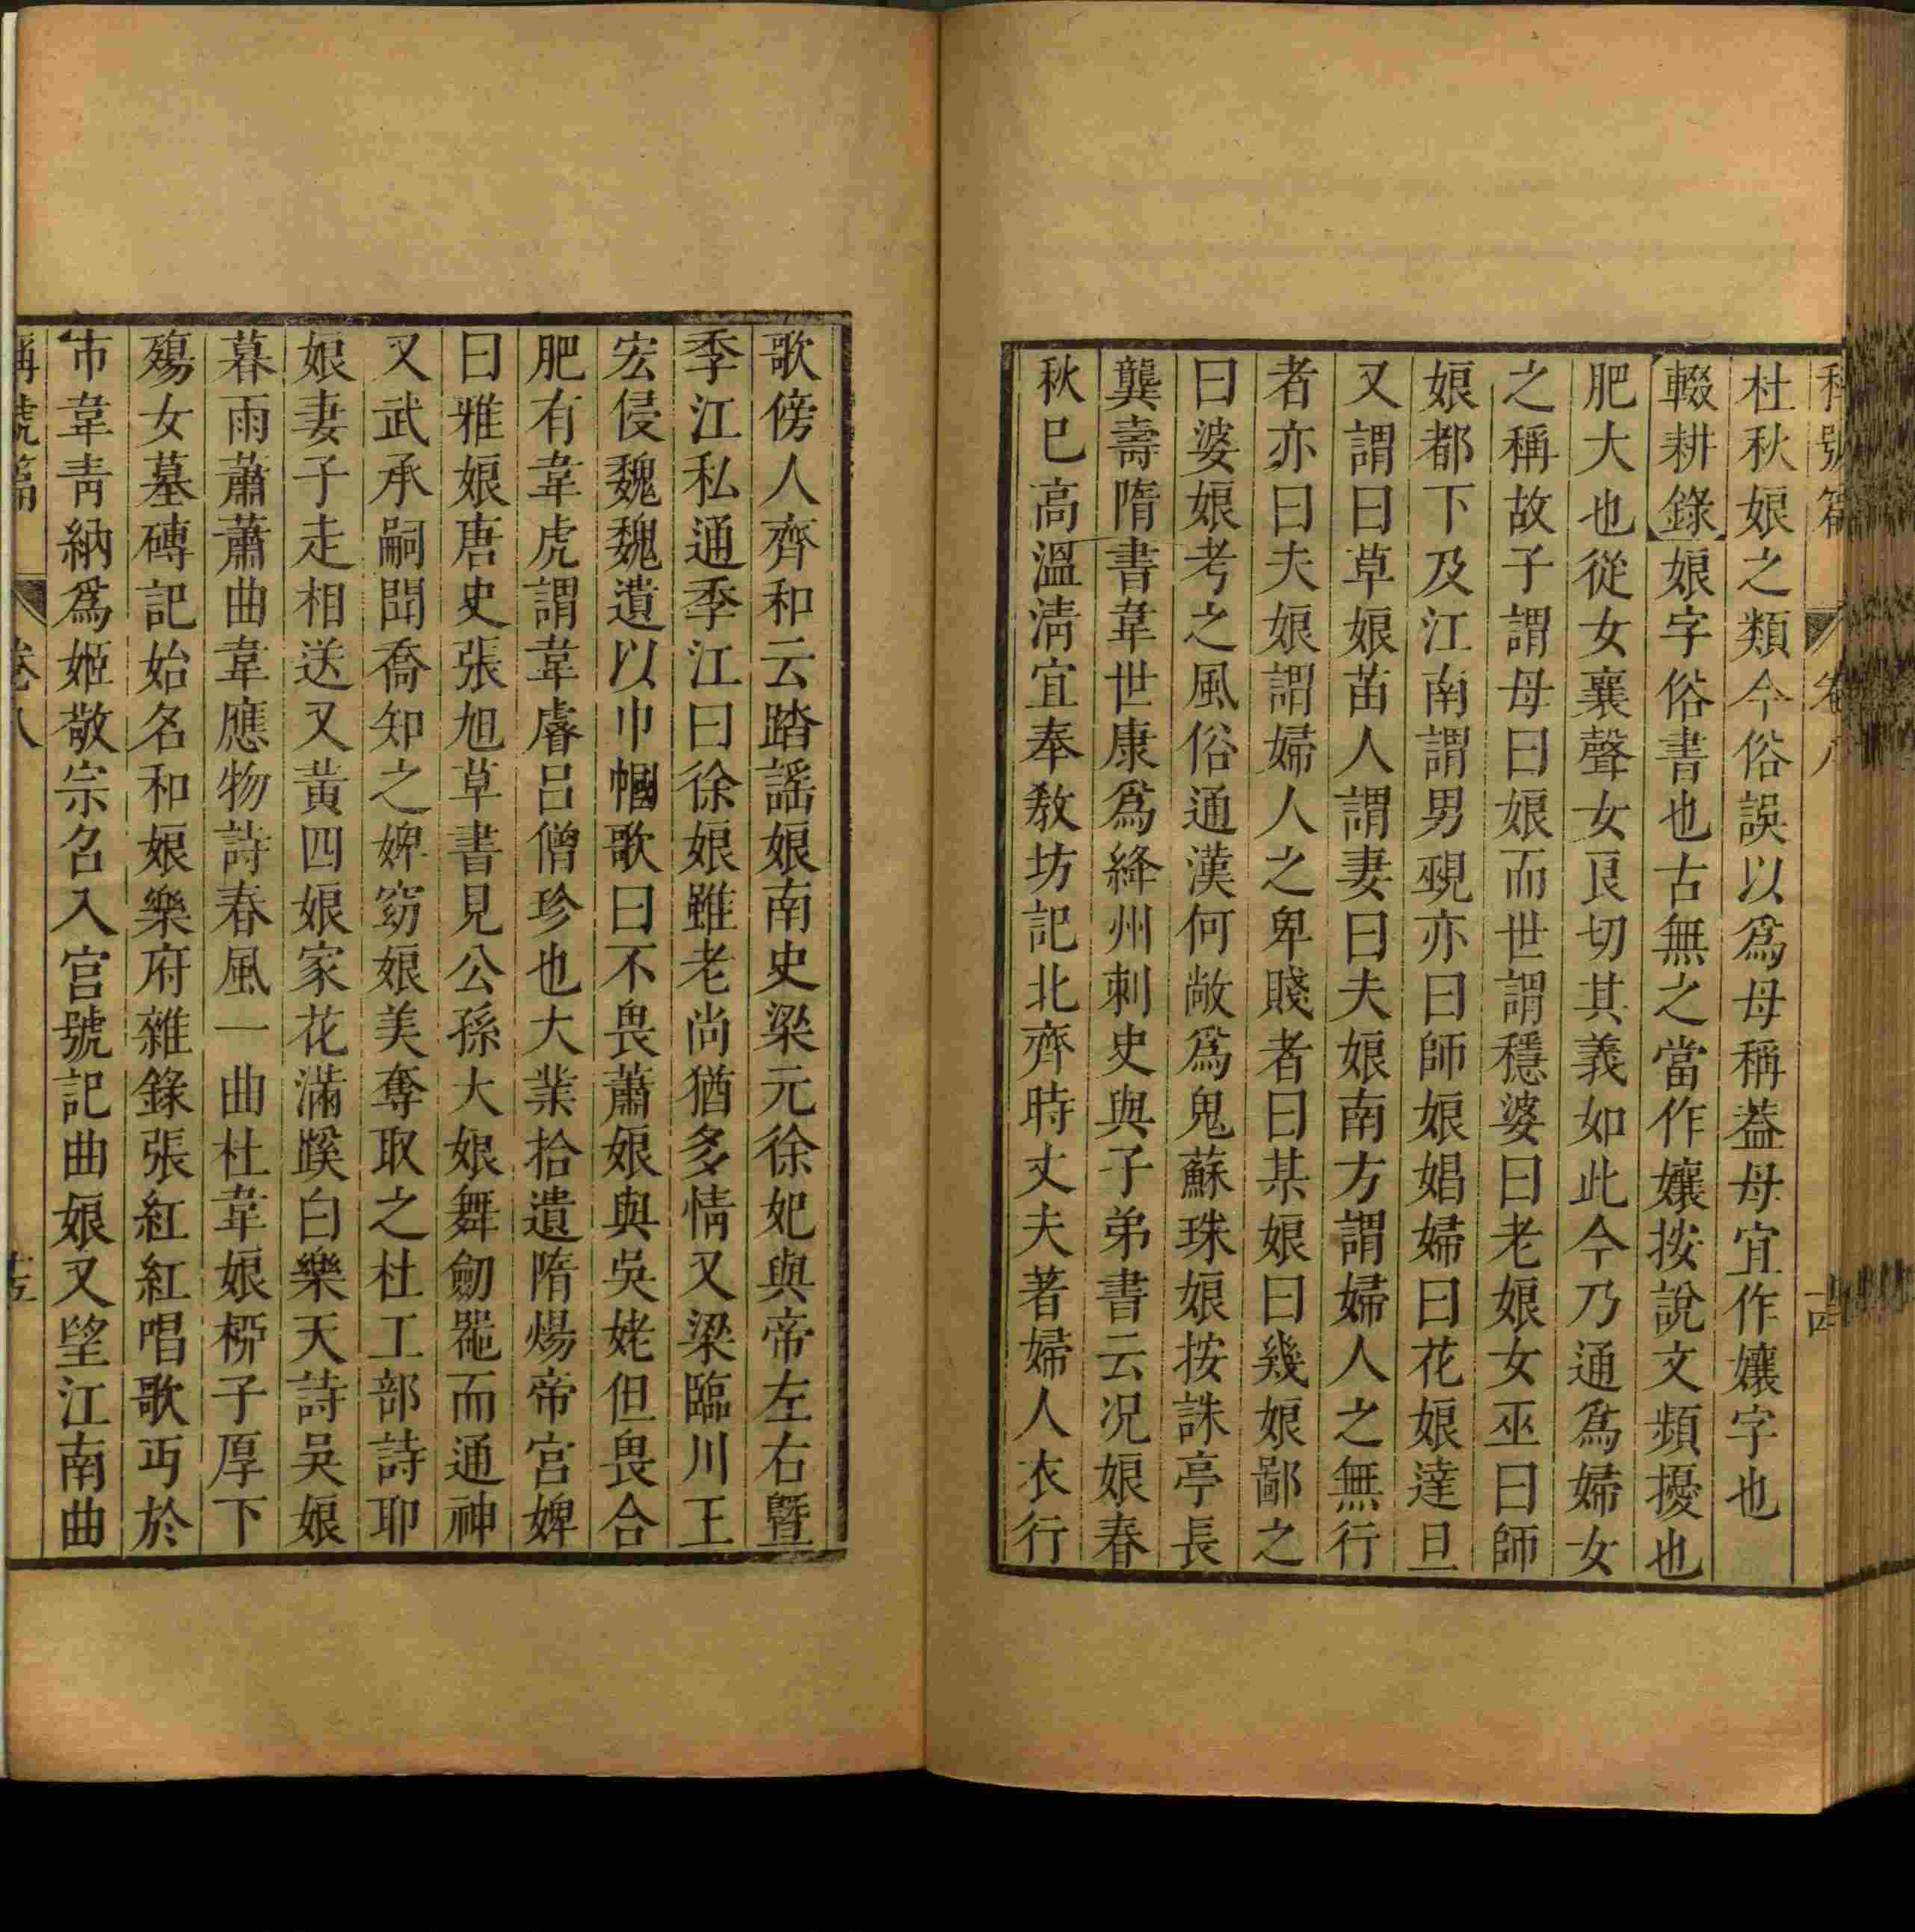 杜秋娘之類今俗誤以爲母稱葢母宜作孃字也
輟耕錄娘字俗書也古無之當作孃按說文煩擾也
肥大也從女襄聲女良切其義如此今乃通爲婦女
之稱故子謂母曰娘而世謂穩婆曰老娘女巫曰師
娘都下及江南謂男覡亦曰師娘娼婦曰花娘達旦
又謂曰草娘苗人謂妻曰夫娘南方謂婦人之無行
者亦曰夫娘謂婦人之卑賤者曰某娘曰幾娘鄙之
曰婆娘考之風俗通漢何敞爲鬼蘇珠娘按誅亭長
龔壽隋書韋世康爲絳州刺史與子弟書云况娘春
秋已高溫淸宜奉敎坊記北齊時丈夫著婦人衣行
歌傍人齊和云踏謡娘南史梁元徐妃與帝左右暨
季江私通季江曰徐娘雖老尚猶多情又梁臨川王
宏侵魏魏遺以巾幗歌曰不畏蕭娘與吳姥但畏合
肥有韋虎謂韋睿呂僧珍也大業拾遺隋煬帝宮婢
曰雅娘唐史張旭草書見公孫大娘舞劒器而通神
又武承嗣聞喬知之婢窈娘美奪取之杜工部詩耶
娘妻子走相送又黃四娘家花滿蹊白樂天詩吳娘
暮雨蕭蕭曲韋應物詩春風一曲杜韋娘柳子厚下
殤女墓磚記始名和娘樂府雜錄張紅紅唱歌丐於
市韋靑納爲姬敬宗召入宮號記曲娘又望江南曲
稱號篇 卷八